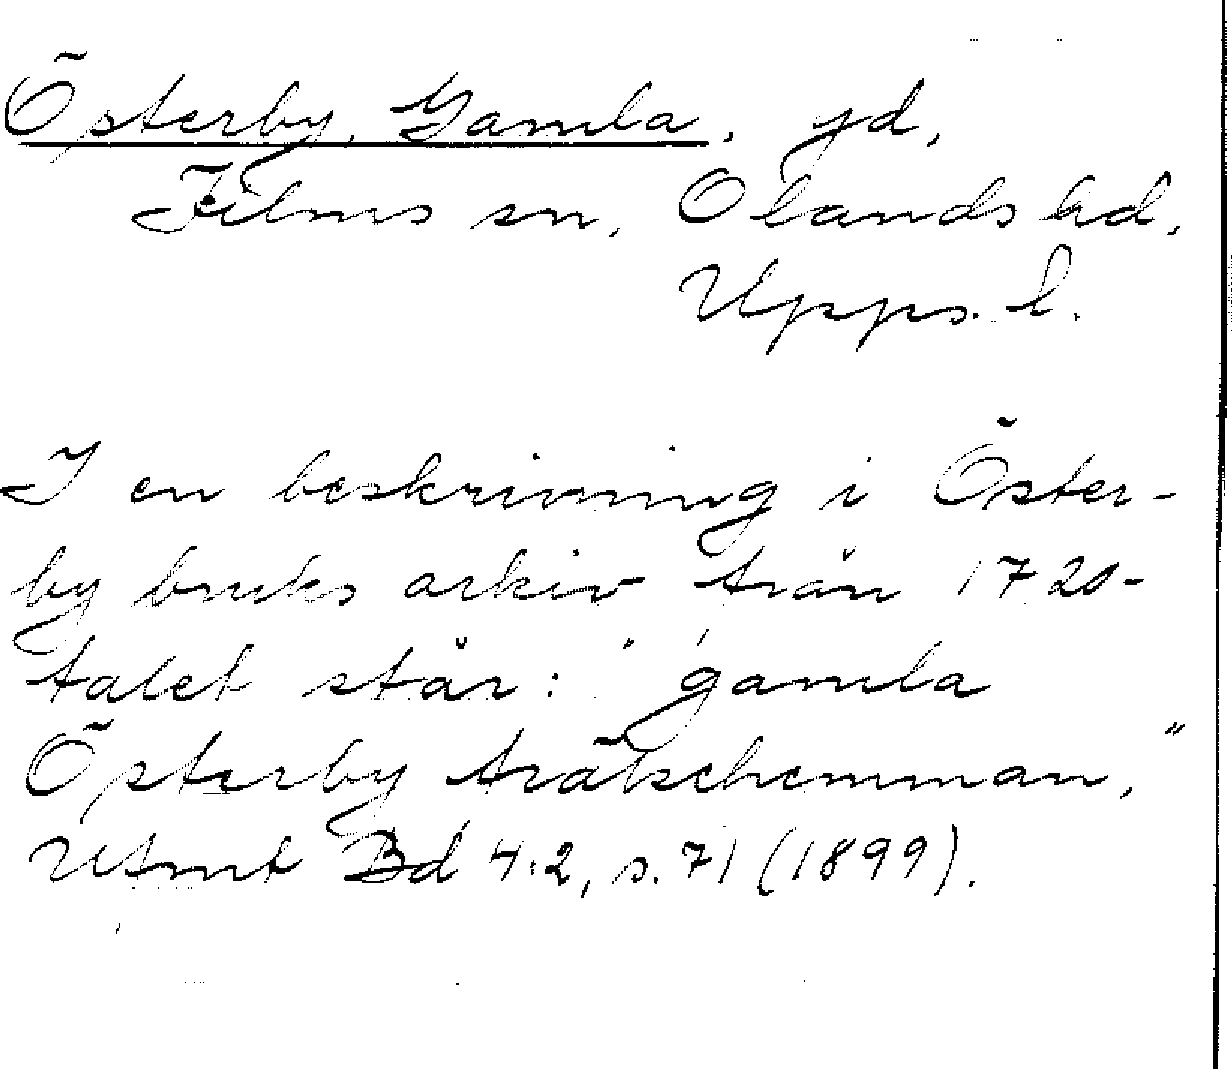 Österby, Gamla, gd,
Films sn, Olands hd,
Upps. l.
I en beskrivning i Öster-
by bruks arkiv från 1720-
talet står: "gamla
Österby frälsehemman,"
Utmt Bd 4:2, s. 71 (1899).